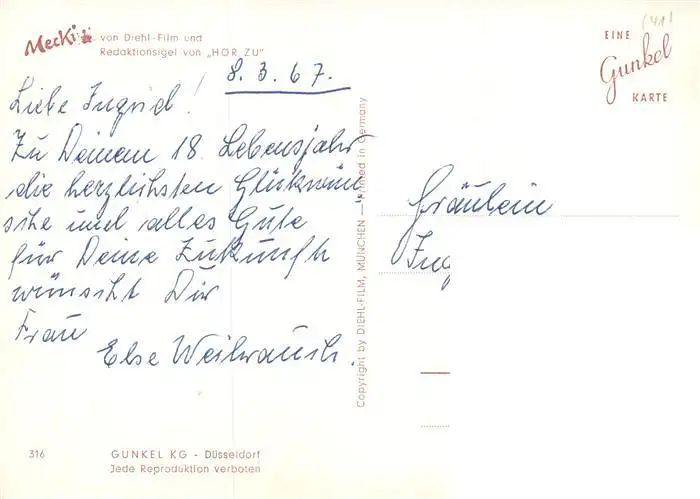 (41)
Mecki von Diehl-Film und
Redaktionsigel von „HÖR ZU"
EINE
Gunkel
KARTE
8. 3. 67.
Liebe Ingrid!
Zu Deinem 18. Lebensjahr
die herzlichsten Glückwün
sche und alles Gute
für Deine Zukunft
wünscht Dir
Frau
Else Weihrauch.
Copyright by DIEHL-FILM, MÜNCHEN — Printed in Germany
Fräulein
Ing
316
GUNKEL KG - Düsseldorf
Jede Reproduktion verboten